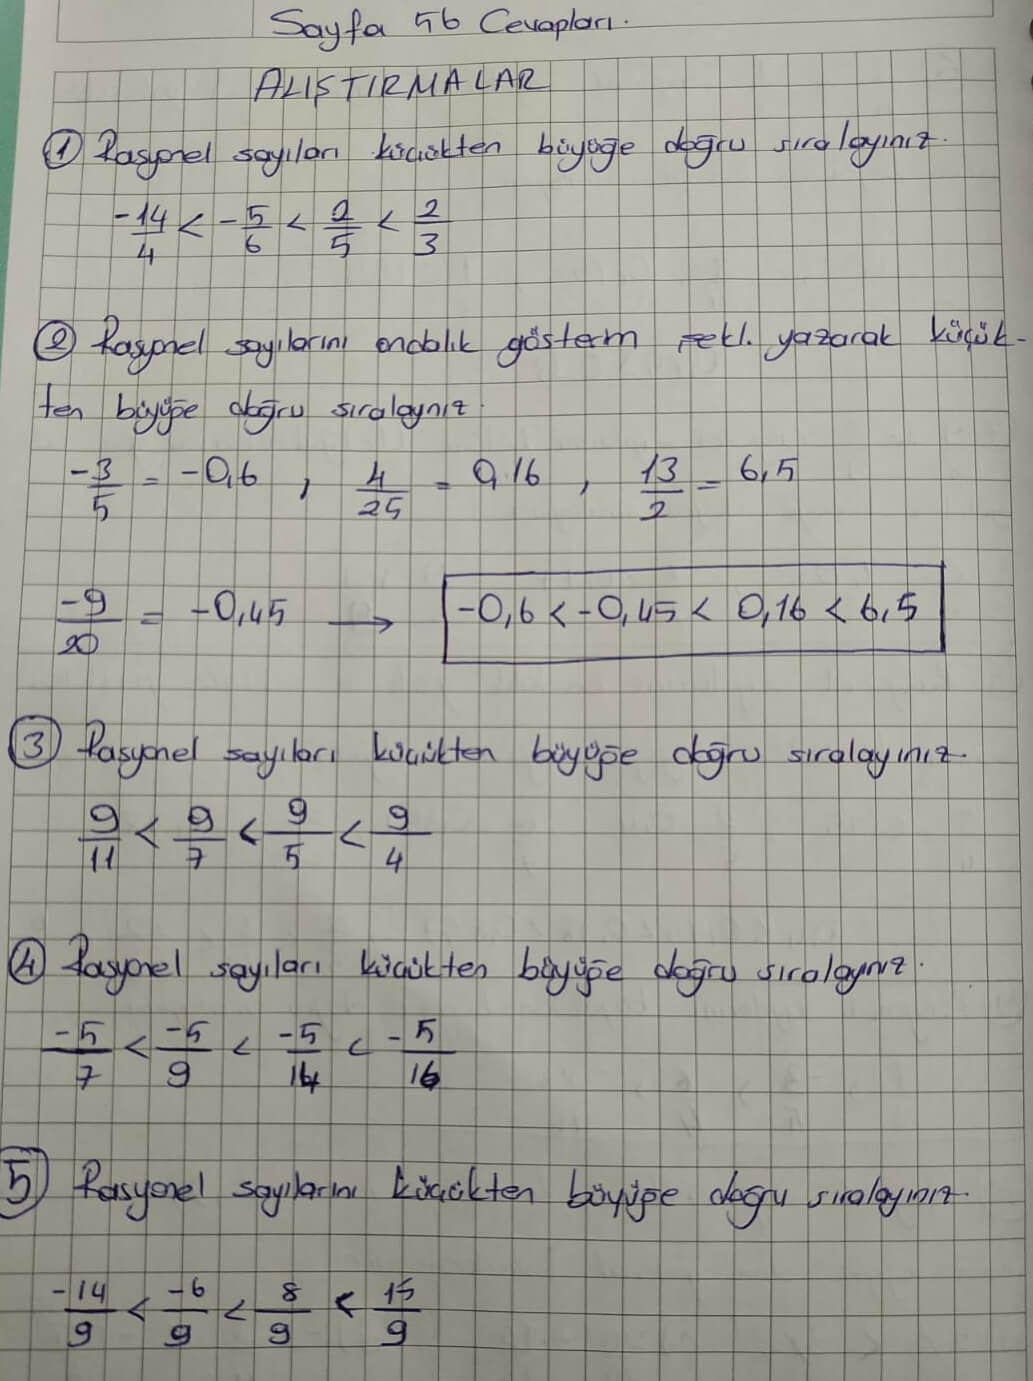 Sayfa 56 Cevapları.
ALIŞTIRMALAR
① Rasyonel sayıları küçükten büyüğe doğru sıralayınız.
-14/4 < -5/6 < 2/5 < 2/3
② Rasyonel sayılarını ondalık gösterm şekl. yazarak küçük-
ten büyüğe doğru sıralayınız.
-3/5 = -0,6 , 4/25 = 0,16 , 13/2 = 6,5
-9/20 = -0,45 → -0,6 < -0,45 < 0,16 < 6,5
③ Rasyonel sayıları küçükten büyüğe doğru sıralayınız.
9/11 < 9/7 < 9/5 < 9/4
④ Rasyonel sayıları küçükten büyüğe doğru sıralayınız.
-5/7 < -5/9 < -5/14 < -5/16
⑤ Rasyonel sayılarını küçükten büyüğe doğru sıralayınız.
-14/9 < -6/9 < 8/9 < 15/9